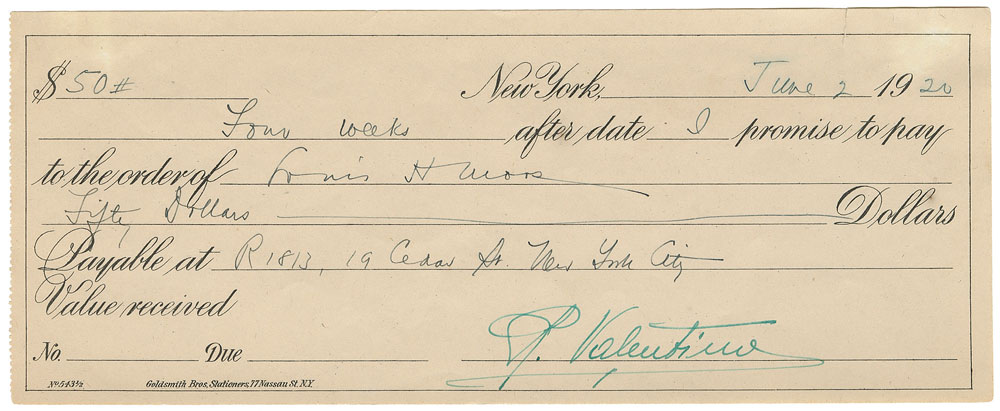 $ 50# New York, June 2 1920
Four weeks after date I promise to pay
to the order of Louis H Moos
Fifty Dollars Dollars
Payable at R1813, 19 Cedar St. New York City
Value received
No. Due R. Valentino
No 543½ Goldsmith Bros, Stationers, 77 Nassau St. N.Y.